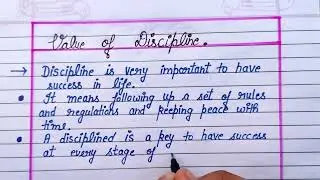 Value of Discipline.
→ Discipline is very important to have
success in life.
• It means following up a set of rules
and regulations and keeping peace with
time.
• A disciplined is a key to have success
at every stage of